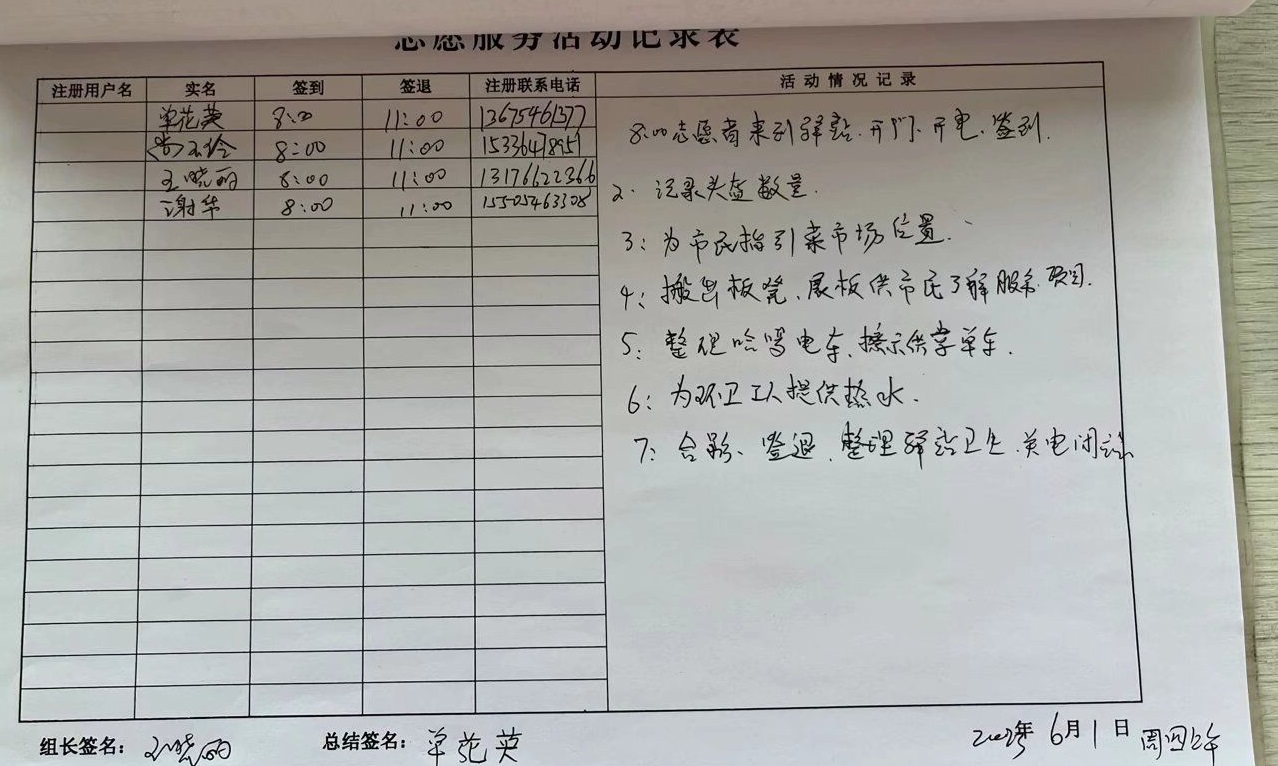 志愿服务活动记录表
注册用户名 实名 签到 签退 注册联系电话 活动情况记录
单花英 8:00 11:00 13675461377
玉玲 8:00 11:00
王晓丽 8:00 11:00 13176622366
谢华 8:00 11:00 15505463308
8:00志愿者来到驿站、开门、开电、签到.
2. 记录头盔数量.
3: 为市民指引菜市场位置.
4: 搬出板凳、展板供市民了解服务项目.
5: 整理哈啰电车、摆共享单车.
6: 为环卫工人提供热水.
7: 合影、签退、整理驿站卫生、关电闭
组长签名: 王晓丽 总结签名: 单花英 2023年 6月1日 周四上午